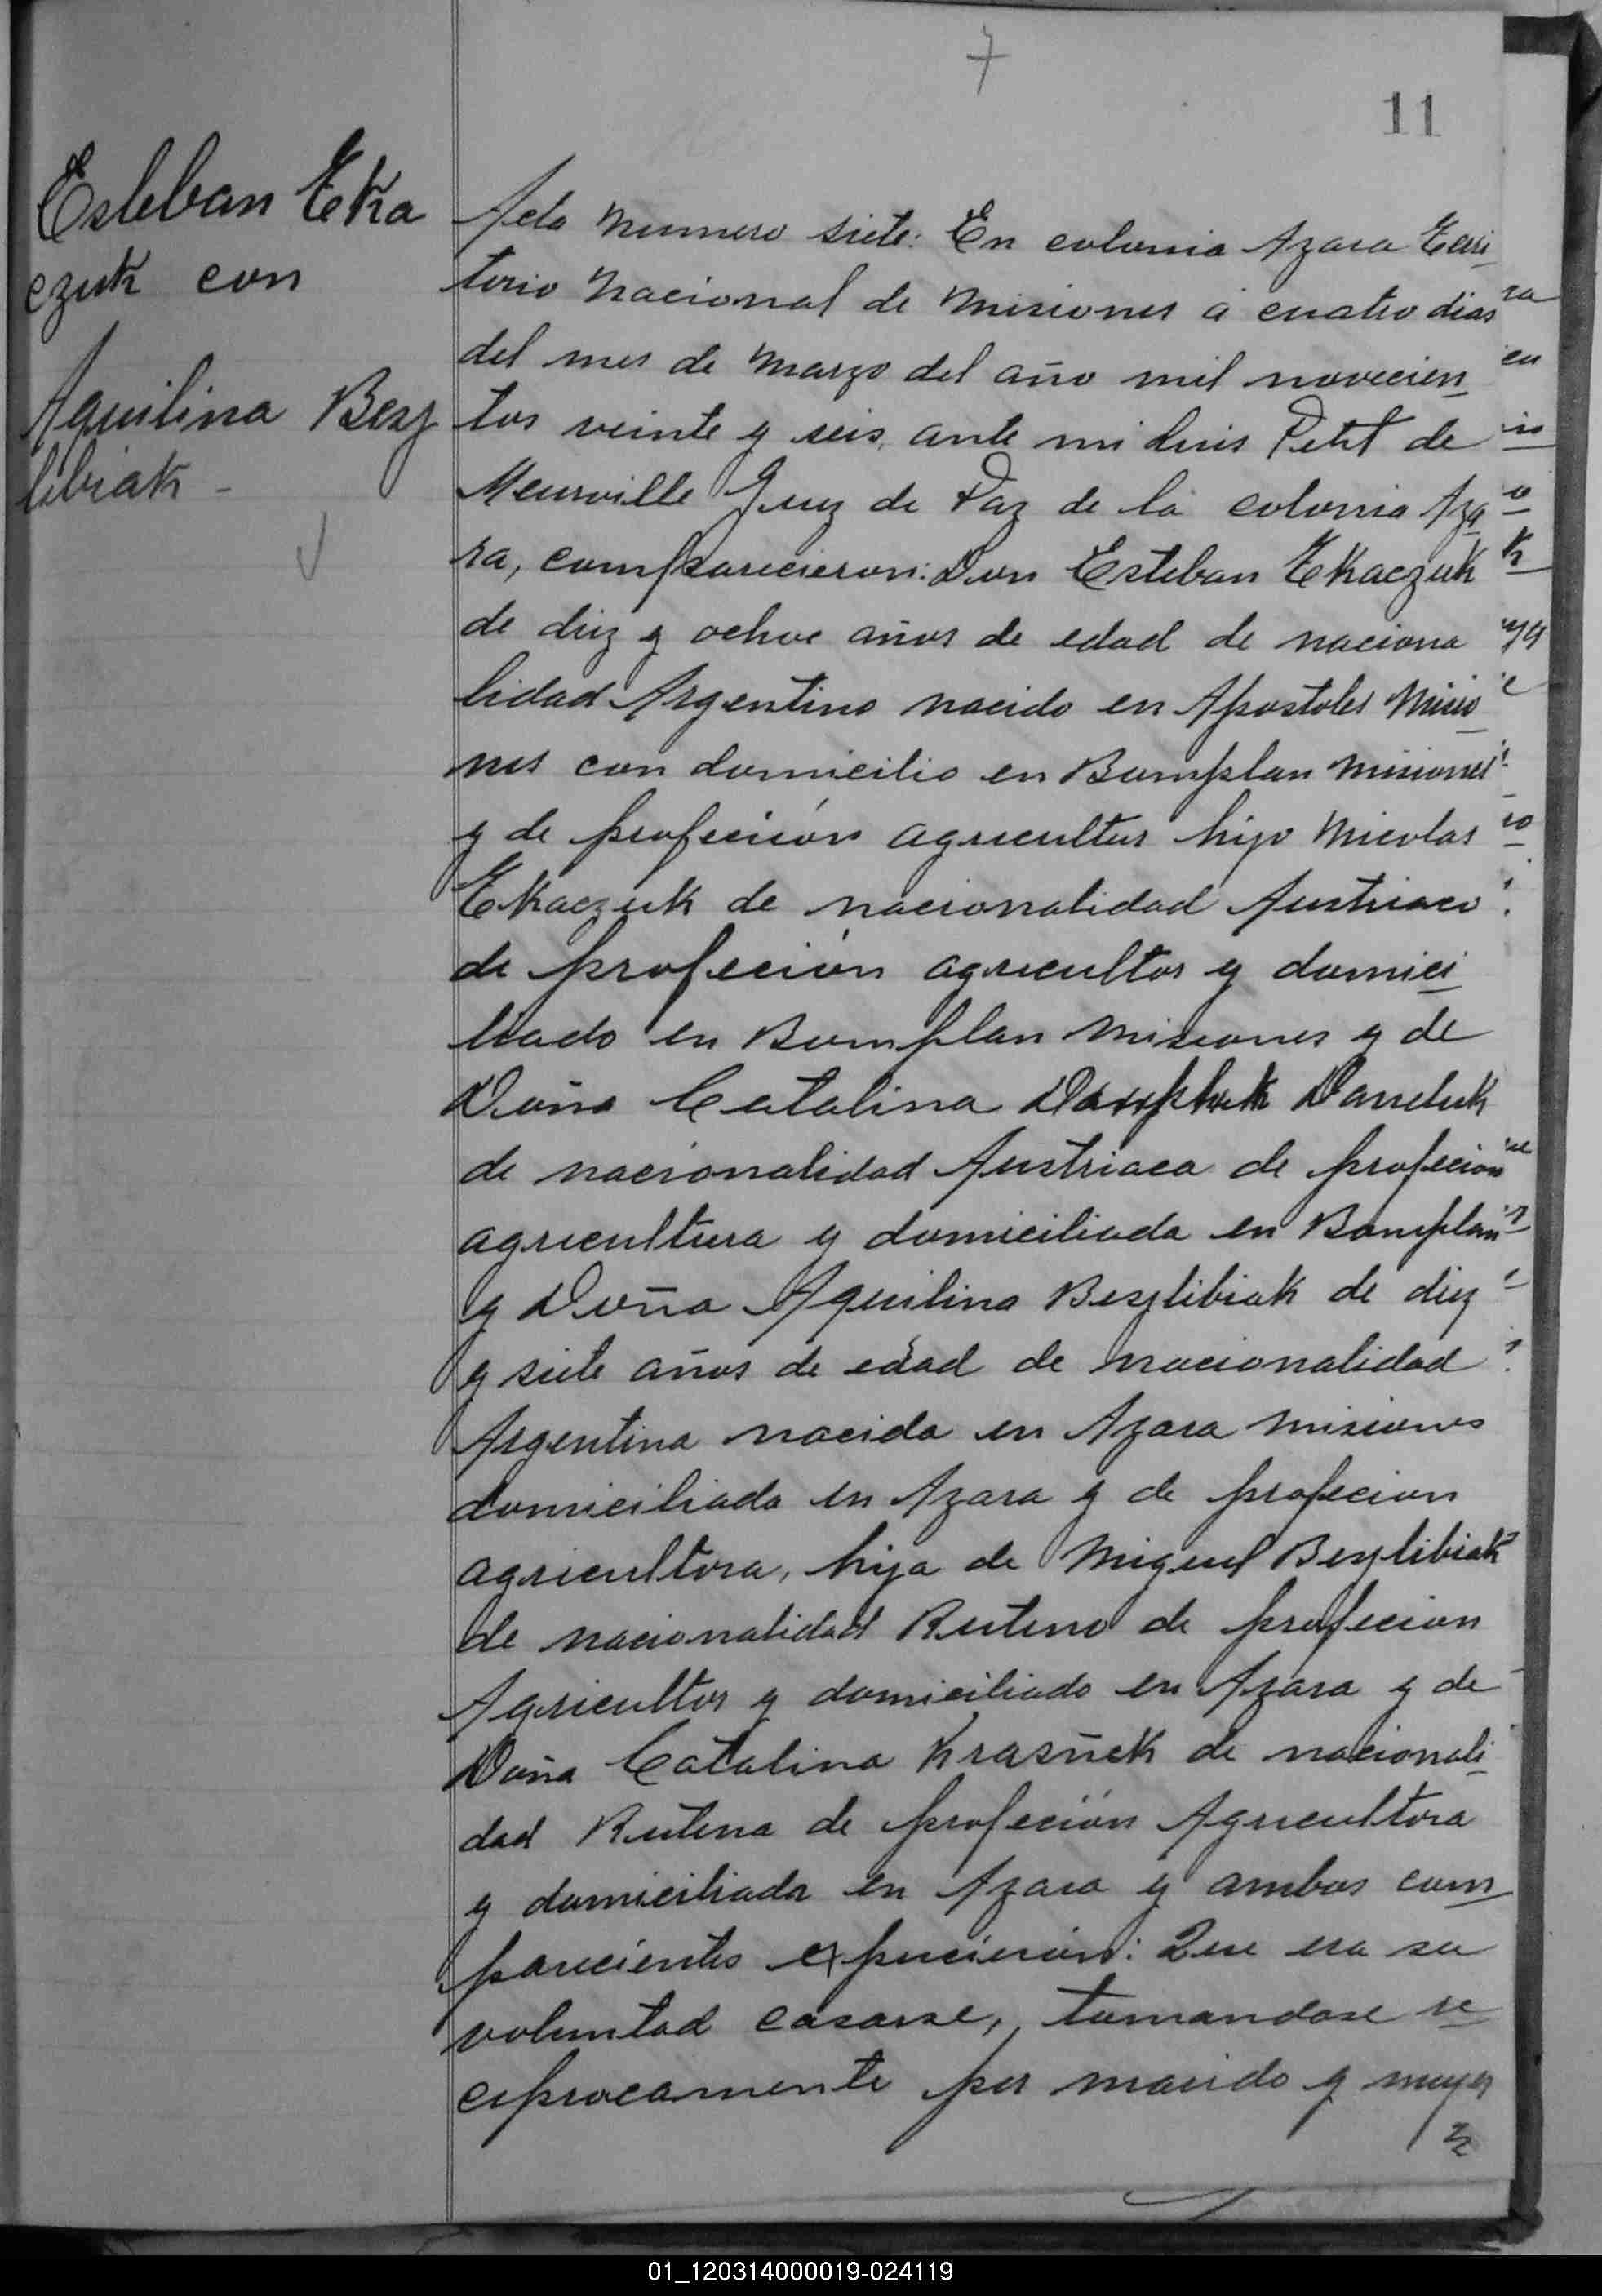 7
11
Esteban Tka
czuk con
Aquilina Besz
libiak -
Acta numero siete: En colonia Azara Terri
torio Nacional de Misiones á cuatro dias
del mes de Marzo del año mil novecien
tos veinte y seis, ante mi Luis Petit de
Meurville Juez de Paz de la colonia Aza
ra, comparecieron: Don Esteban Tkaczuk
de diez y ochoe años de edad de naciona
lidad Argentino nacido en Apostoles Misio
nes con domicilio en Bomplan Misiones
y de profeción agricultor hijo Nicolas
Tkaczuk de nacionalidad Austriaco
de profeción agricultor y domici
liado en Bomplan Misiones y de
Doña Catalina Daneluk
de nacionalidad Austriaca de profecion
agricultura y domiciliada en Bomplan
y Doña Aquilina Beszlibiak de diez
y siete años de edad de nacionalidad
Argentina nacida en Azara Misiones
domiciliada en Azara y de profecion
agricultora, hija de Miguel Beszlibiak
de nacionalidad Ruteno de profecion
Agricultor y domiciliado en Azara y de
Doña Catalina Krasñek de nacionali
dad Rutena de profeción Agricultora
y domiciliada en Azara y ambos com
parecientes expucieron: Que era su
voluntad casarse, tomandose re
ciprocamente por marido y mujer
01_120314000019-024119